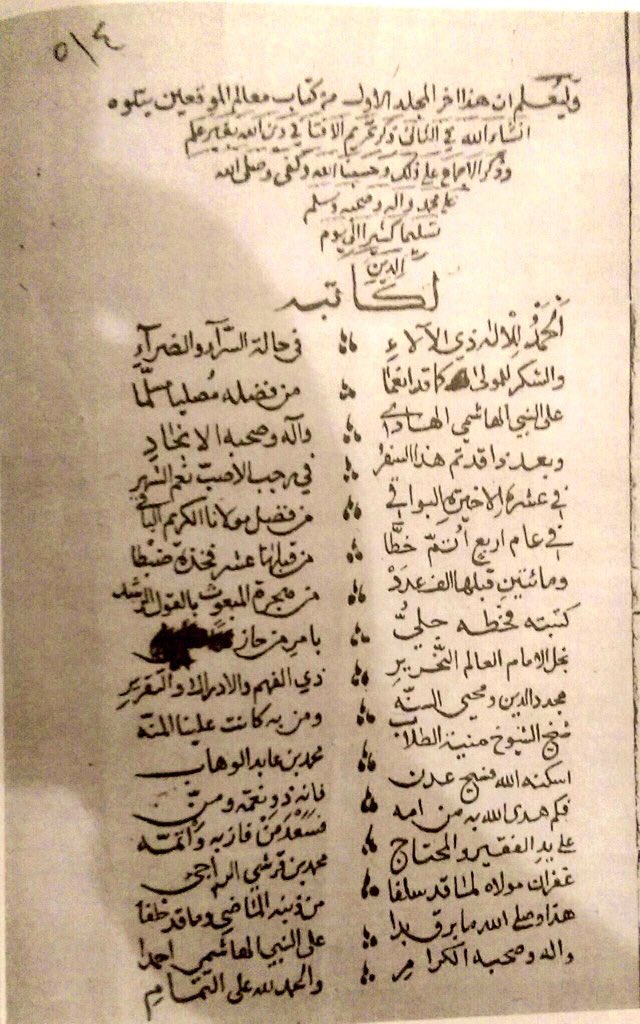 ٥١٤
وليعلم ان هذا اخر المجلد الاول من كتاب معالم الموقعين يتلوه
انشاء الله في الثاني ذكر تحريم الافتا في دين الله بغير علم
وذكر الاجماع على ذلك وحسبنا الله وكفى وصلى الله
على محمد واله وصحبه وسلم
تسليما كثيرا الى يوم
الدين
لكاتبه
اَلحمدُ لِلْاله ذي الآلاءِ في حالة السَّرآء والضرآءِ
والشكر للمولى كما قد انعما من فضله مُصليا مسلّما
على النبي الهاشمي الهادي وآله وصحبه الانجادِ
وبعد وا قد تم هذا السفرُ في رجب الاصبّ نعم الشهر
في عشره الاخيرة البواقي من فضل مولانا الكريم الباقي
في عام اربع اُتمّ خطَّا من قبلها عشر فخذه ضبطا
ومائتين قبلها الف عددْ من هجرة المبعوث بالقول الرشد
كتبته فخطه جليُّ بامر من حاز
نجل الامام العالم النحريرِ ذي الفهم والادراك والتقريرِ
مجدد الدين ومحيي السنّه ومن به كانت علينا المنّه
شيخ الشيوخ منية الطلاب محمد بن عابد الوهاب
اسكنه الله فسيح عدن فانه ذو نعمة ومنّ
فكم هدى الله به من امه فسَعْد مَنْ فاز به وأمّه
على يد الفقير والمحتاج محمد بن قرشي الراجي
غفران مولاه لما قد سلفا من ذنبه الماضي وما قد خلفا
هذا وصلى الله ما برق بدا على النبي الهاشمي احمدا
واله وصحبه الكرامِ والحمد لله على التمامِ